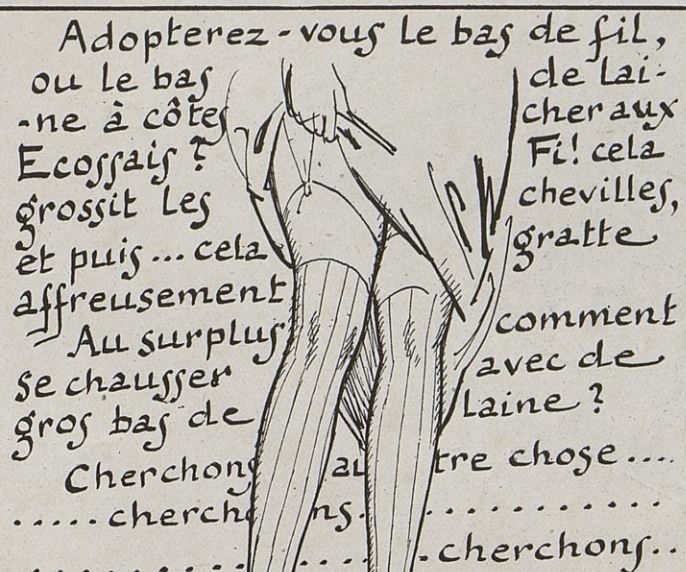 Adopterez-vous le bas de fil,
ou le bas de lai-
-ne à côtes cher aux
Ecossais ? Fi! cela
grossit les chevilles,
et puis... cela gratte
affreusement
Au surplus comment
se chausser avec de
gros bas de laine ?
Cherchons autre chose....
.....cherchons............
............cherchons..